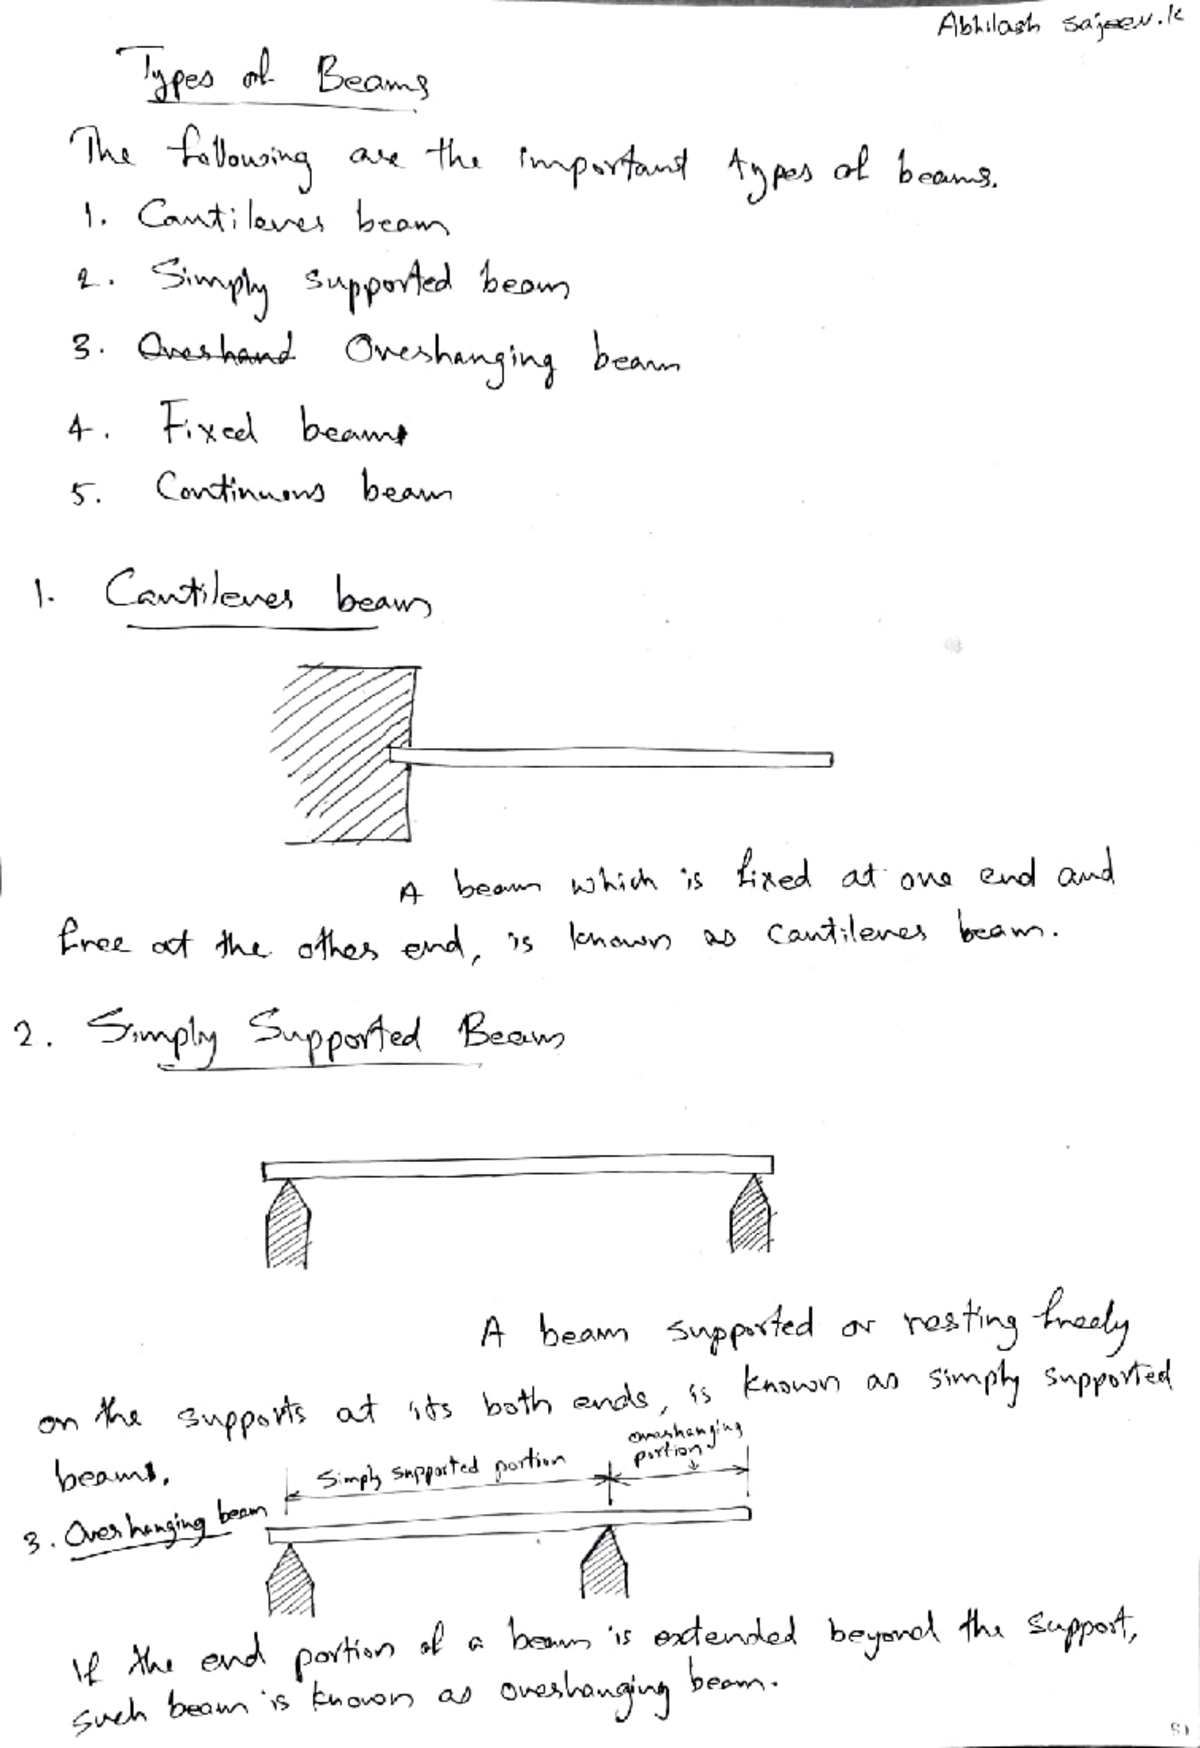 Abhilash Sajeev.K
Types of Beams
The following are the important types of beams.
1. Cantilever beam
2. Simply supported beam
3. Overhand Overhanging beam
4. Fixed beam
5. Continuous beam
1. Cantilever beam
A beam which is fixed at one end and
free at the other end, is known as cantilever beam.
2. Simply Supported Beam
A beam supported or resting freely
on the supports at its both ends, is known as simply supported
beam.
Simply supported portion
overhanging
portion
3. Overhanging beam
If the end portion of a beam is extended beyond the support,
such beam is known as overhanging beam.